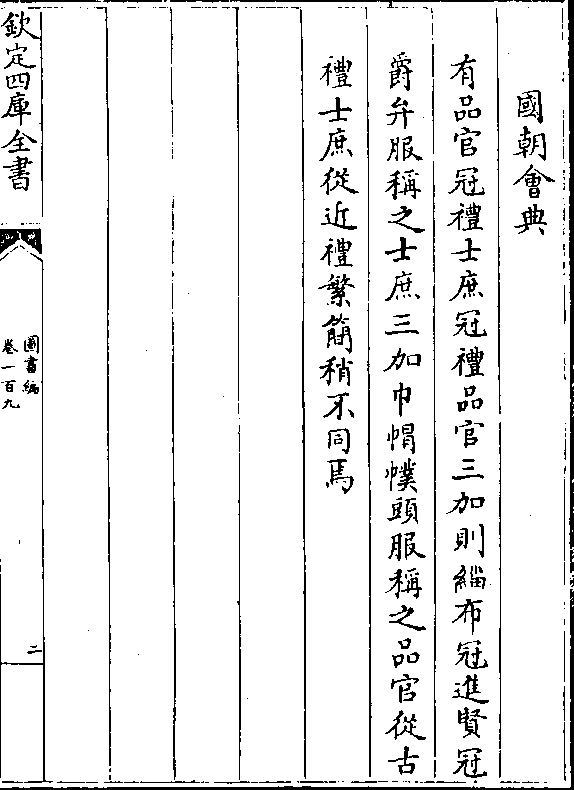 國朝會典
有品官冠禮士庶冠禮品官三加則緇布冠進賢冠
爵弁服稱之士庶三加巾帽幞頭服稱之品官從古
禮士庶從近禮繁簡稍不同焉
欽定四庫全書
圖書編
卷一百九
二